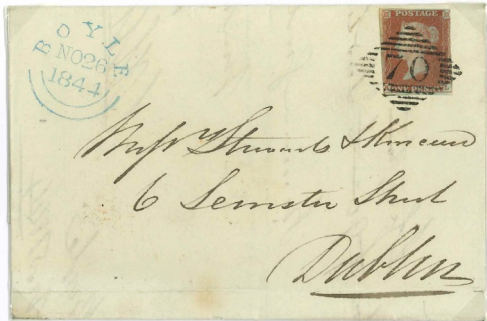 BOYLE
NO 26
1844
POSTAGE
70
ONE PENNY
Messrs Stewards & Kincaid
6 Leinster Street
Dublin